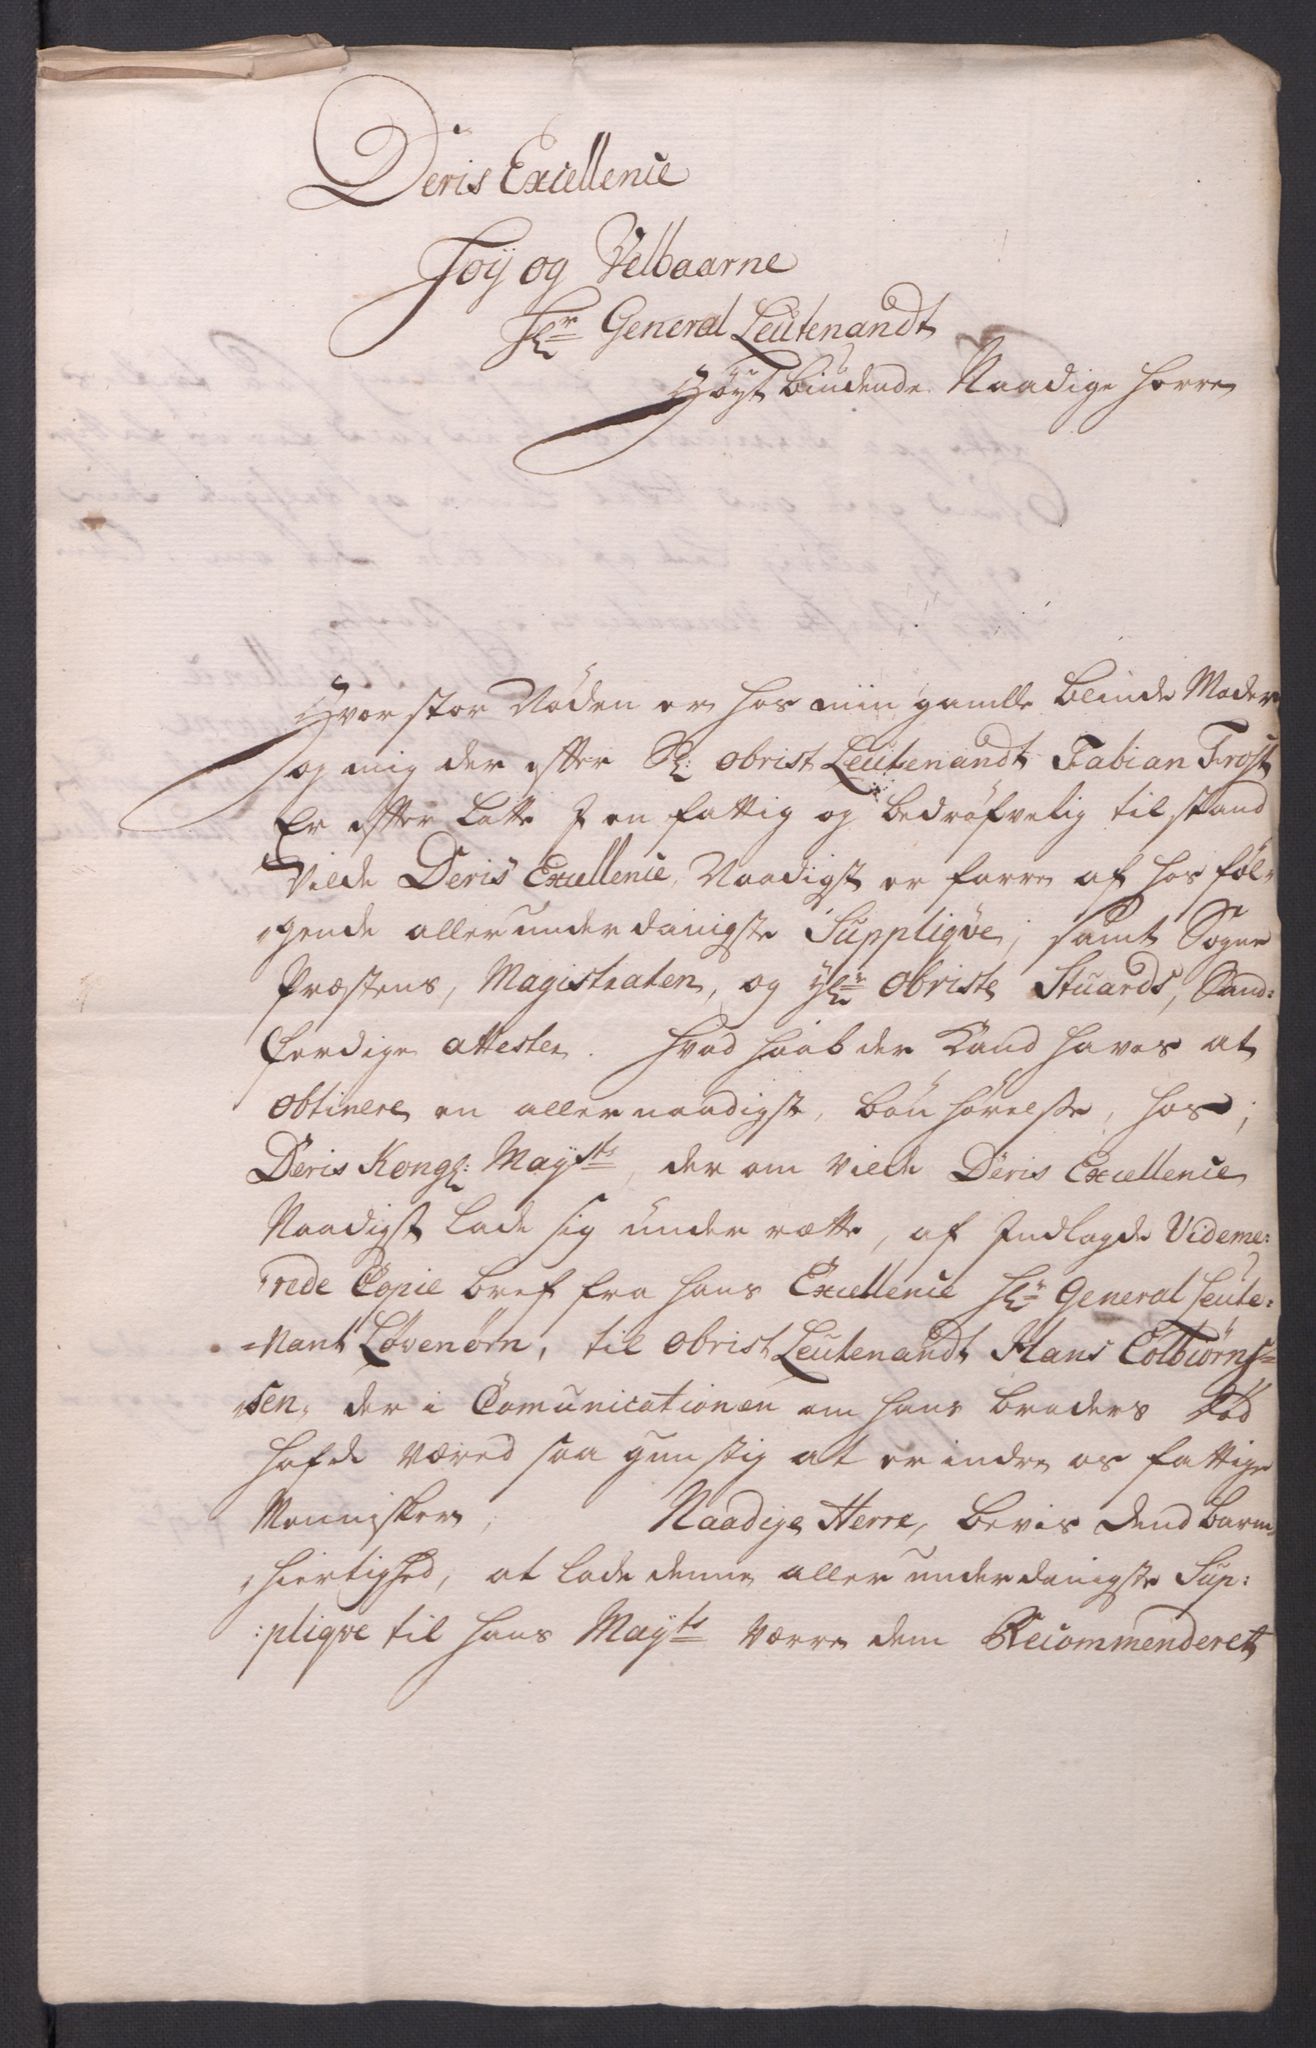 Deris Excellence
Høÿ og Velbaarne
Hr General Leutenandt
Høyt biudende Naadige Herre
Hvor stor Nöden er hos min gamlle blinde Moder
og mig der efter Sl: Obrist Leutenandt Fabian Frost
Er efter Latte I en fattig og bedröfvelig tilstand
Vilde Deris Excellence, Naadigst er farre af hos föl„
„gende allerunderdanigste Suppliqve, samt Sogne
Præstens, Magistraten, og Hr Obriste Stuards, Sand:
færdige attester. Hvad Haab der Kand haves at
obtinere en allernaadigste, bön hörelse, hos,
Deris Kongl: Mayts, der om vilde Deris Excellence
Naadigst lade sig underrætte, af Indlagde Videme:
„rede Copie bref fra Hans Excellence Hr General Leute:
„Nant Løvenørn, til Obrist Leutenandt Hans Colbiørns„
„sen, der i Comunicationen om Hans broders Död
Hafde væred saa gunstig at erindre os fattige
Mennisker, Naadige Herre, bevis dend barm„
„hiertighed, at lade denne allerunderdanigste Sup:
:pliqve til Hans Mayts Værre dem Recommenderet